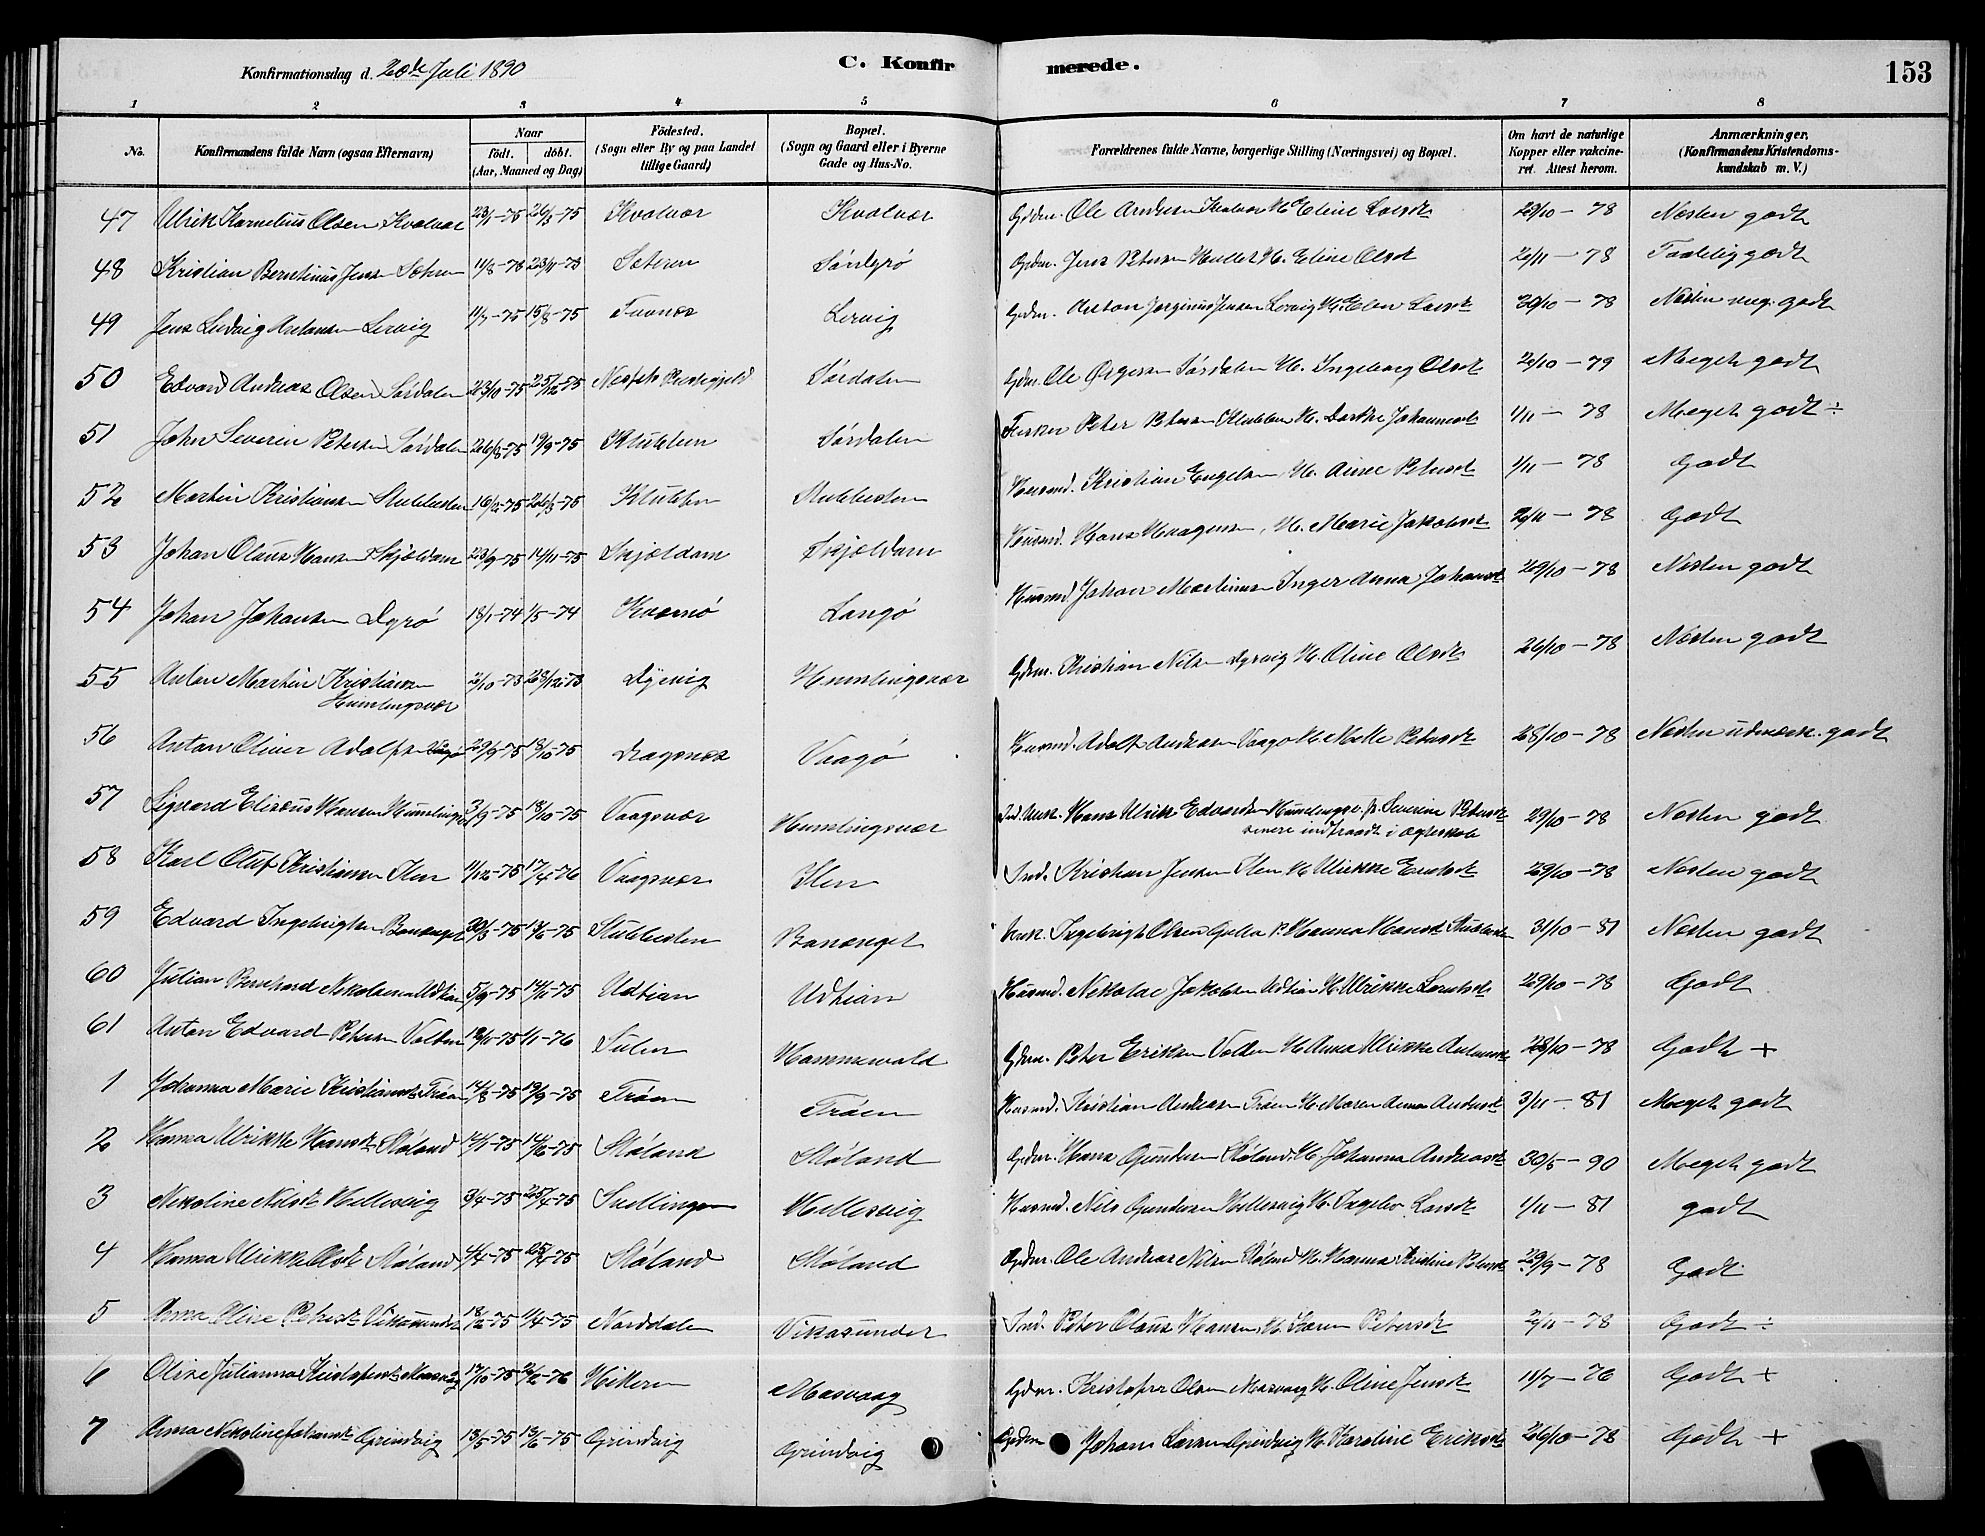 Konfirmationsdag d. 20de Juli 1890
C. Konfirmerede.
153
1 2 3 4 5 6 7 8
No. Konfirmandens fulde Navn (ogsaa Efternavn) Naar født. døbt. (Aar, Maaned og Dag) Fødested. (Sogn eller By og paa Landet tillige Gaard) Bopæl. (Sogn og Gaard eller i Byerne Gade og Hus-No. Forældrenes fulde Navne, borgerlige Stilling (Næringsvei) og Bopæl. Om havt de naturlige Kopper eller vakcineret. Attest herom. Anmærkninger, (Konfirmandens Kristendomskundskab m. V.)
47 Ulrik Kornelius Olsen Kvalvær 23/1-75 26/3-75 Kvalvær Kvalvær Gdm. Ole Andersen Kvalvær H. Eline Larsdt 29/10-78 Næsten godt
48 Kristian Berntinus Jens Sætren 11/8-73 23/11-73 Sæteren Sørdyrø Gdm. Jens Petersen H. Eline Olsdt 2/11-78 Taalelig godt
49 Jens Ludvig Antonsen Lervig 11/7-75 15/8-75 Lervig Gdm. Anton Jørginus Jensen Lervig H. Elen Larsdt 30/10-78 Næsten meg. godt
50 Edvard Andreas Olsen Sørdalen 23/10-75 25/12-75 Præstegjeld Sørdalen Gdm. Ole Sørdalen H. Ingeborg Olsdt 2/10-79 Meget godt
51 John Severin Petersen Sørdalen 26/8-75 19/9-75 Klubben Sørdalen Fisker Peter Petersen Klubben H. Dorthe Johannesdt 1/11-78 Meget godt ÷
52 Martin Kristiansen Stubbesten 16/2-75 26/3-75 Klubben Stubbesten Husmd. Kristian Engelsen, H. Anne Petersdt 1/11-78 Godt
53 Johan Olaus Hansen Skjældam 23/9-75 14/11-75 Skjeldam Skjeldam Husmd. Hans Haagensen, H. Marie Jakobsdt 2/11-78 Godt
54 Johan Johansen Dyrø 18/1-74 1/5-74 Kværnø Langø Husmd. Johan Martinsen Inger Anna Johansdt 29/10-78 Næsten godt
55 Anton Martin Kristiansen Humlingsvær 2/10-73 28/12-73 Dyrvig Humlingsvær Gdm. Kristian Nilsen Dyrvig H. Oline Olsdt 26/10-78 Næsten godt
56 Anton Oliver Adolfsen Vaagø 29/9-75 18/10-75 Dragsnes Vaagø Husmd. Adolf Andersen Vaagø H. Mette Petersdt 28/10-78 Næsten udmærk. godt
57 Sigvard Elisæus Hansen Humlingsvær 3/9-75 18/10-75 Vaagsvær Humlingsvær Ind. Unk. Hans Ulrik Edvardsen Humlingsv. p. Severine Petersdt 29/10-78 Næsten godt
senere indtraadt i Ægteskab
58 Karl Oluf Kristiansen Ilen 11/12-75 17/4-76 Vaagsvær Ilen Ind. Kristian Jensen Ilen H. Ulrikke Enoksdt 29/10-78 Næsten godt
59 Edvard Ingebrigtsen Banænget 30/3-75 13/6-75 Stubbesten Banænget Unk. Ingebrigt Olsen P. Hanna Hansdt Stubbesten 31/10-81 Næsten godt
60 Julian Bernhard Nikolaisen Udtian 5/9-75 14/11-75 Udtian Udtian Husmd. Nikolai Jakobsen Udtian H. Ulrikke Larsdt 29/10-78 Godt
61 Anton Edvard Petersen Valten 19/11-75 1/1-76 Sulen Hammervold Gdm. Peter Eriksen H. Anna Ulrikke Antonsdt 28/10-78 Godt +
1 Johanna Marie Kristiansdt Trøen 14/8-75 19/9-75 Trøen Trøen Husmd. Kristian Andersen Trøen H. Maren Anna Andersdt 3/11-81 Meget godt
2 Hanna Ulrikke Hansdt Støland 14/1-75 13/6-75 Støland Støland Gdm. Hans Gundersen Støland H. Johanna Andreasdt 30/5-90 Meget godt
3 Nikoline Nilsdt Hellesvig 3/4-75 25/4-75 Snellingen Hellesvig Husmd. Nils Gundersen Hellesvig H. Ingebor Larsdt 1/11-81 godt
4 Hanna Ulrikke Olsdt Støland 4/4-75 25/4-75 Støland Støland Gdm. Ole Andreas Nilsen Støland H. Hanna Kristine Petersdt 29/9-78 Godt
5 Anna Oline Petersdt Vikasundet 18/2-75 1/4-75 Norddalen Vikasundet Ind. Peter Olaus Hansen, H. Karen Petersdt 2/11-78 Godt ÷
6 Oline Julianna Kristofersdt Masvaag 17/10-75 2/2-76 Hikeren Masvaag Gdm. Kristofer Olsen Masvaag H. Oline Jensdt 11/7-76 Godt +
7 Anna Nikoline Johansdt Grindvig 18/5-75 13/6-75 Grindvig Grindvig Gdm. Johan Larsen Grindvig H. Karoline Eriksdt 26/10-78 Godt +